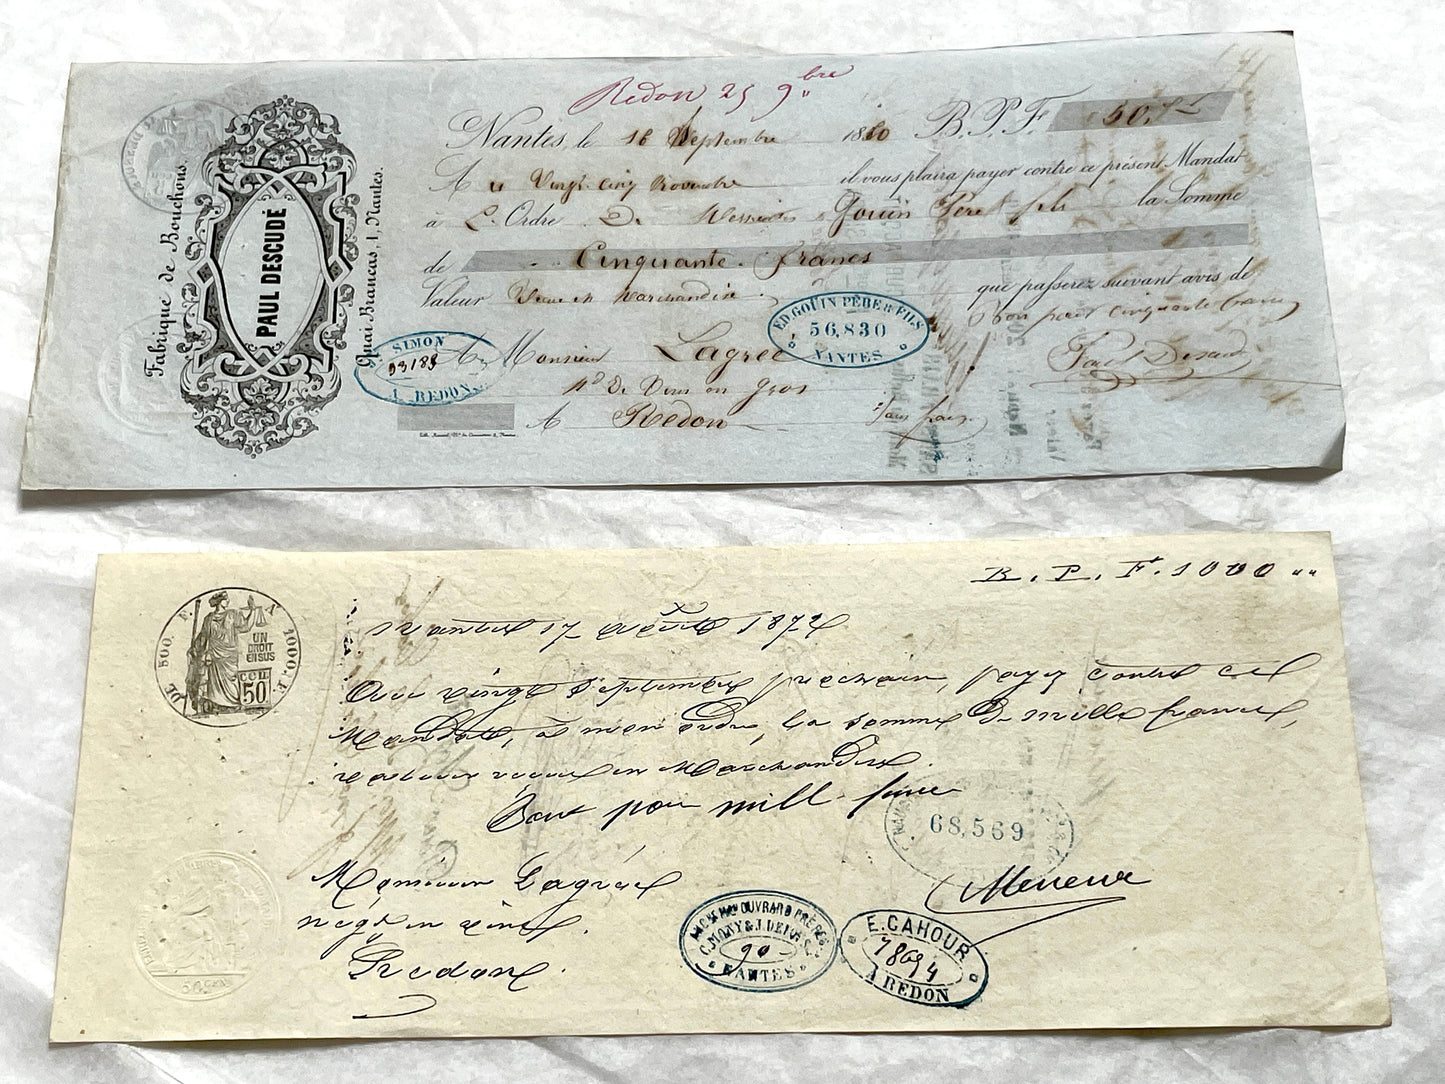 Redon 25 9bre
Nantes, le 16 Septembre 1860 B.P.F. 50,"
A u Vingt cinq Novembre il vous plaira payer contre ce présent Mandat
à L'Ordre De Messieurs Gouin Pere & fils la Somme
de Cinquante francs
Valeur Recue en Marchandise que passerez suivant avis de
Bon pour cinquante francs
A Monsieur Lagreé
Md De Vins en Gros
A Redon Sans frais
Fabrique de Bouchons.
PAUL DESCUDÉ
Quai Brancas, 1, Nantes.
ED. GOUIN PÈRE & FILS
56,830
NANTES
SIMON
93188
A REDON
B. P. F. 1000 ""
Nantes 17 1872
DE 500 F. A 1000 F.
UN
DROIT
EN SUS
50
Au vingt Septembre prochain, payez contre cet
Mandat, à mon ordre, la somme De mille francs,
valeur reçue en Marchandises.
Bon pour mill franc
68,569
Monsieur Lagrée
négt en vins
Redon.
OUVRARD FRÈRES
90
NANTES
E. CAHOUR
78694
A REDON